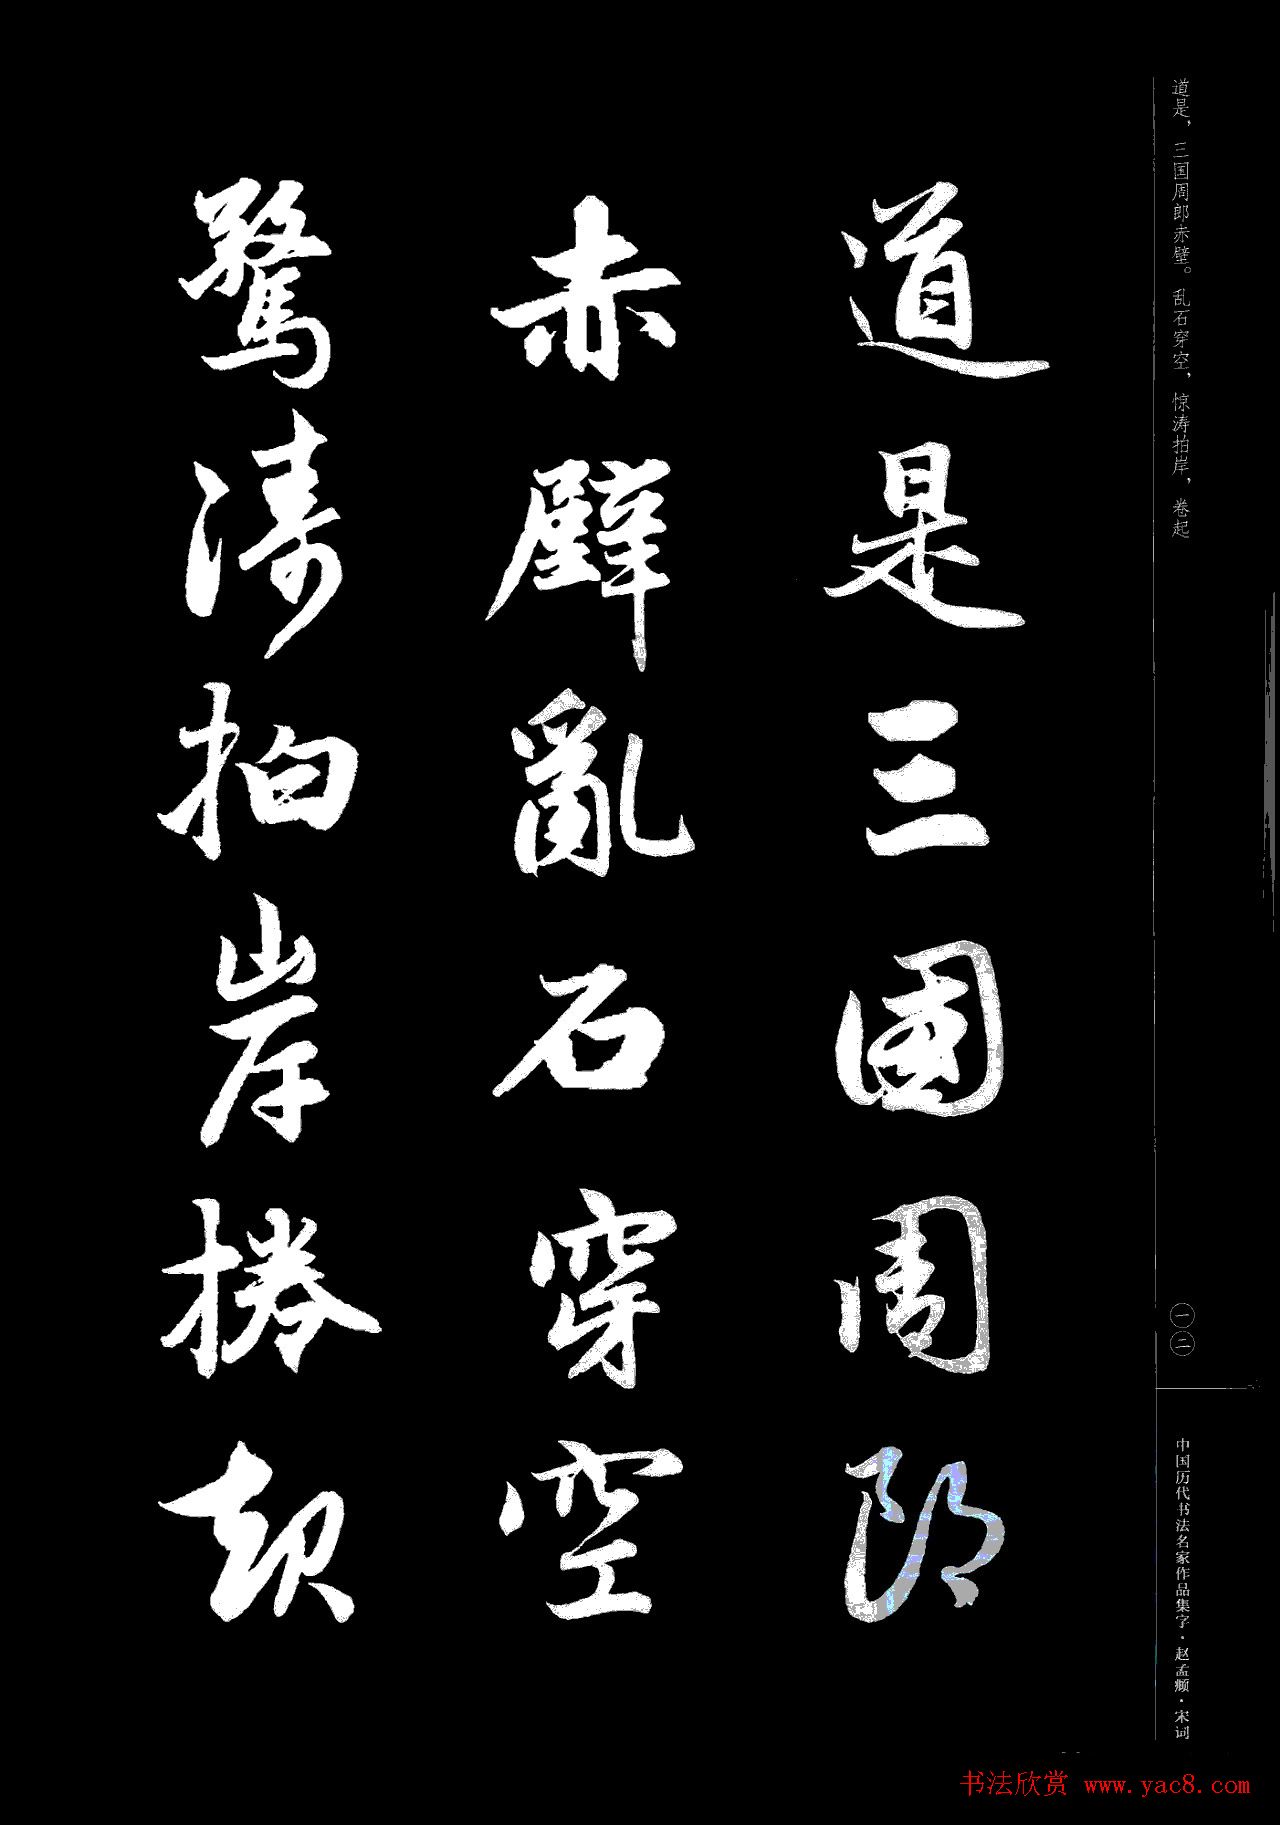 道是，三国周郎赤壁。乱石穿空，惊涛拍岸，卷起
道是三國周郎
赤壁亂石穿空
驚濤拍岸捲起
一二
中国历代书法名家作品集字·赵孟頫·宋词
书法欣赏 www.yac8.com